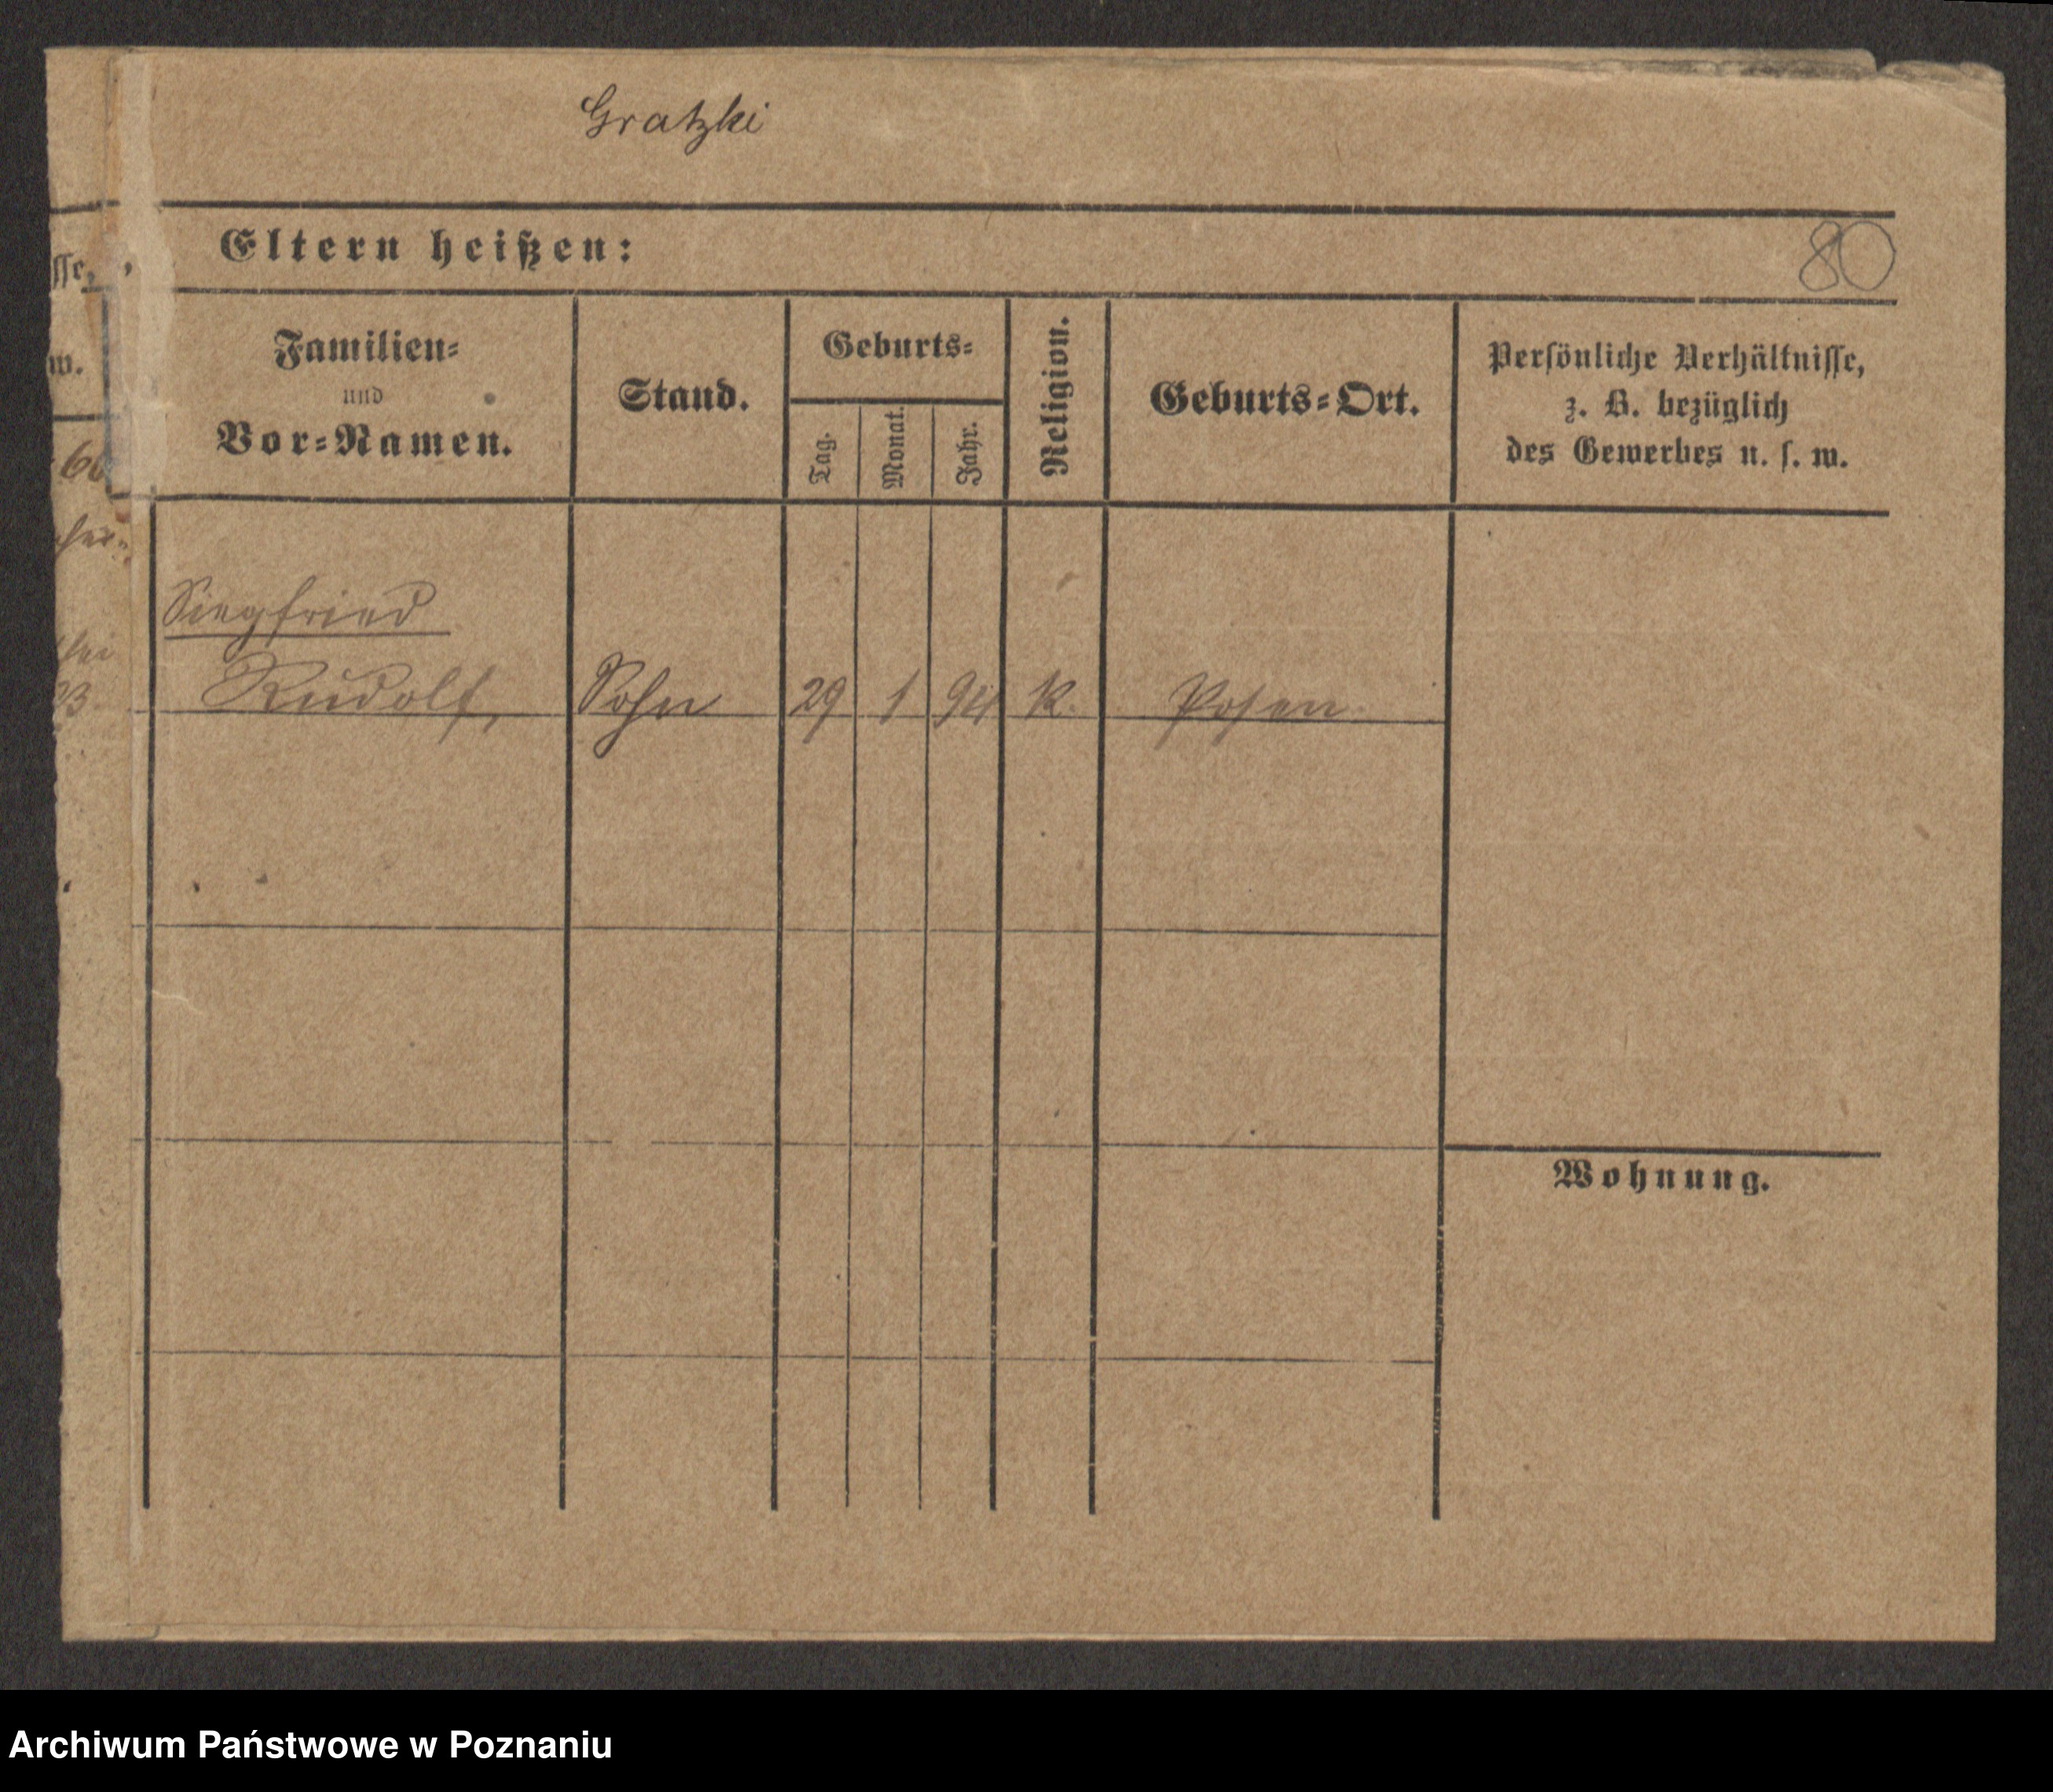 Gratzki
Eltern heißen:
80
sse,
w.
Familien-
und
Vor-Namen.
Stand.
Geburts-
Tag.
Monat.
Jahr.
Religion.
Geburts-Ort.
Persönliche Verhältnisse,
z. B. bezüglich
des Gewerbes u. s. w.
Siegfried
Rudolf, Sohn 29 1 94 K. Posen
Wohnung.
Archiwum Państwowe w Poznaniu